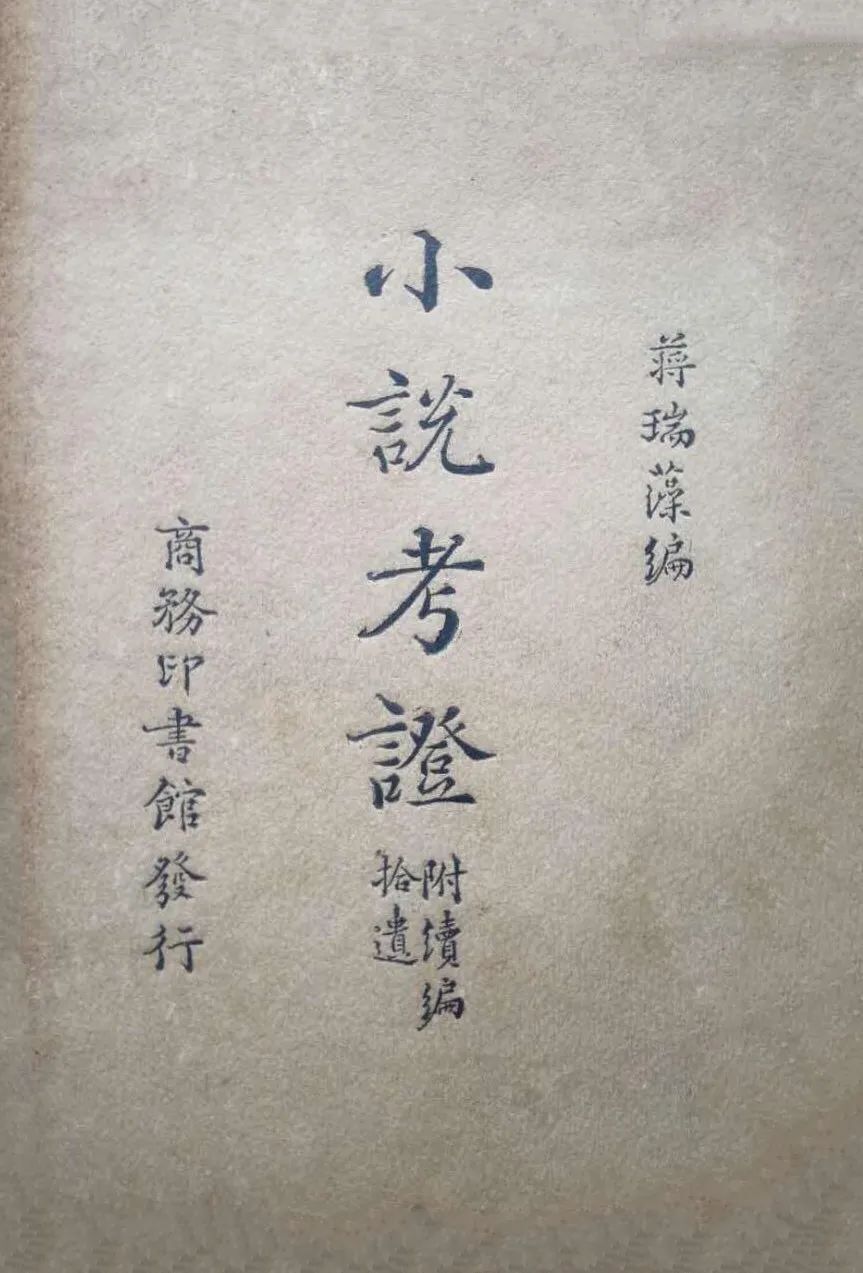 蔣瑞藻編
小說考證
附續編
拾遺
商務印書館發行